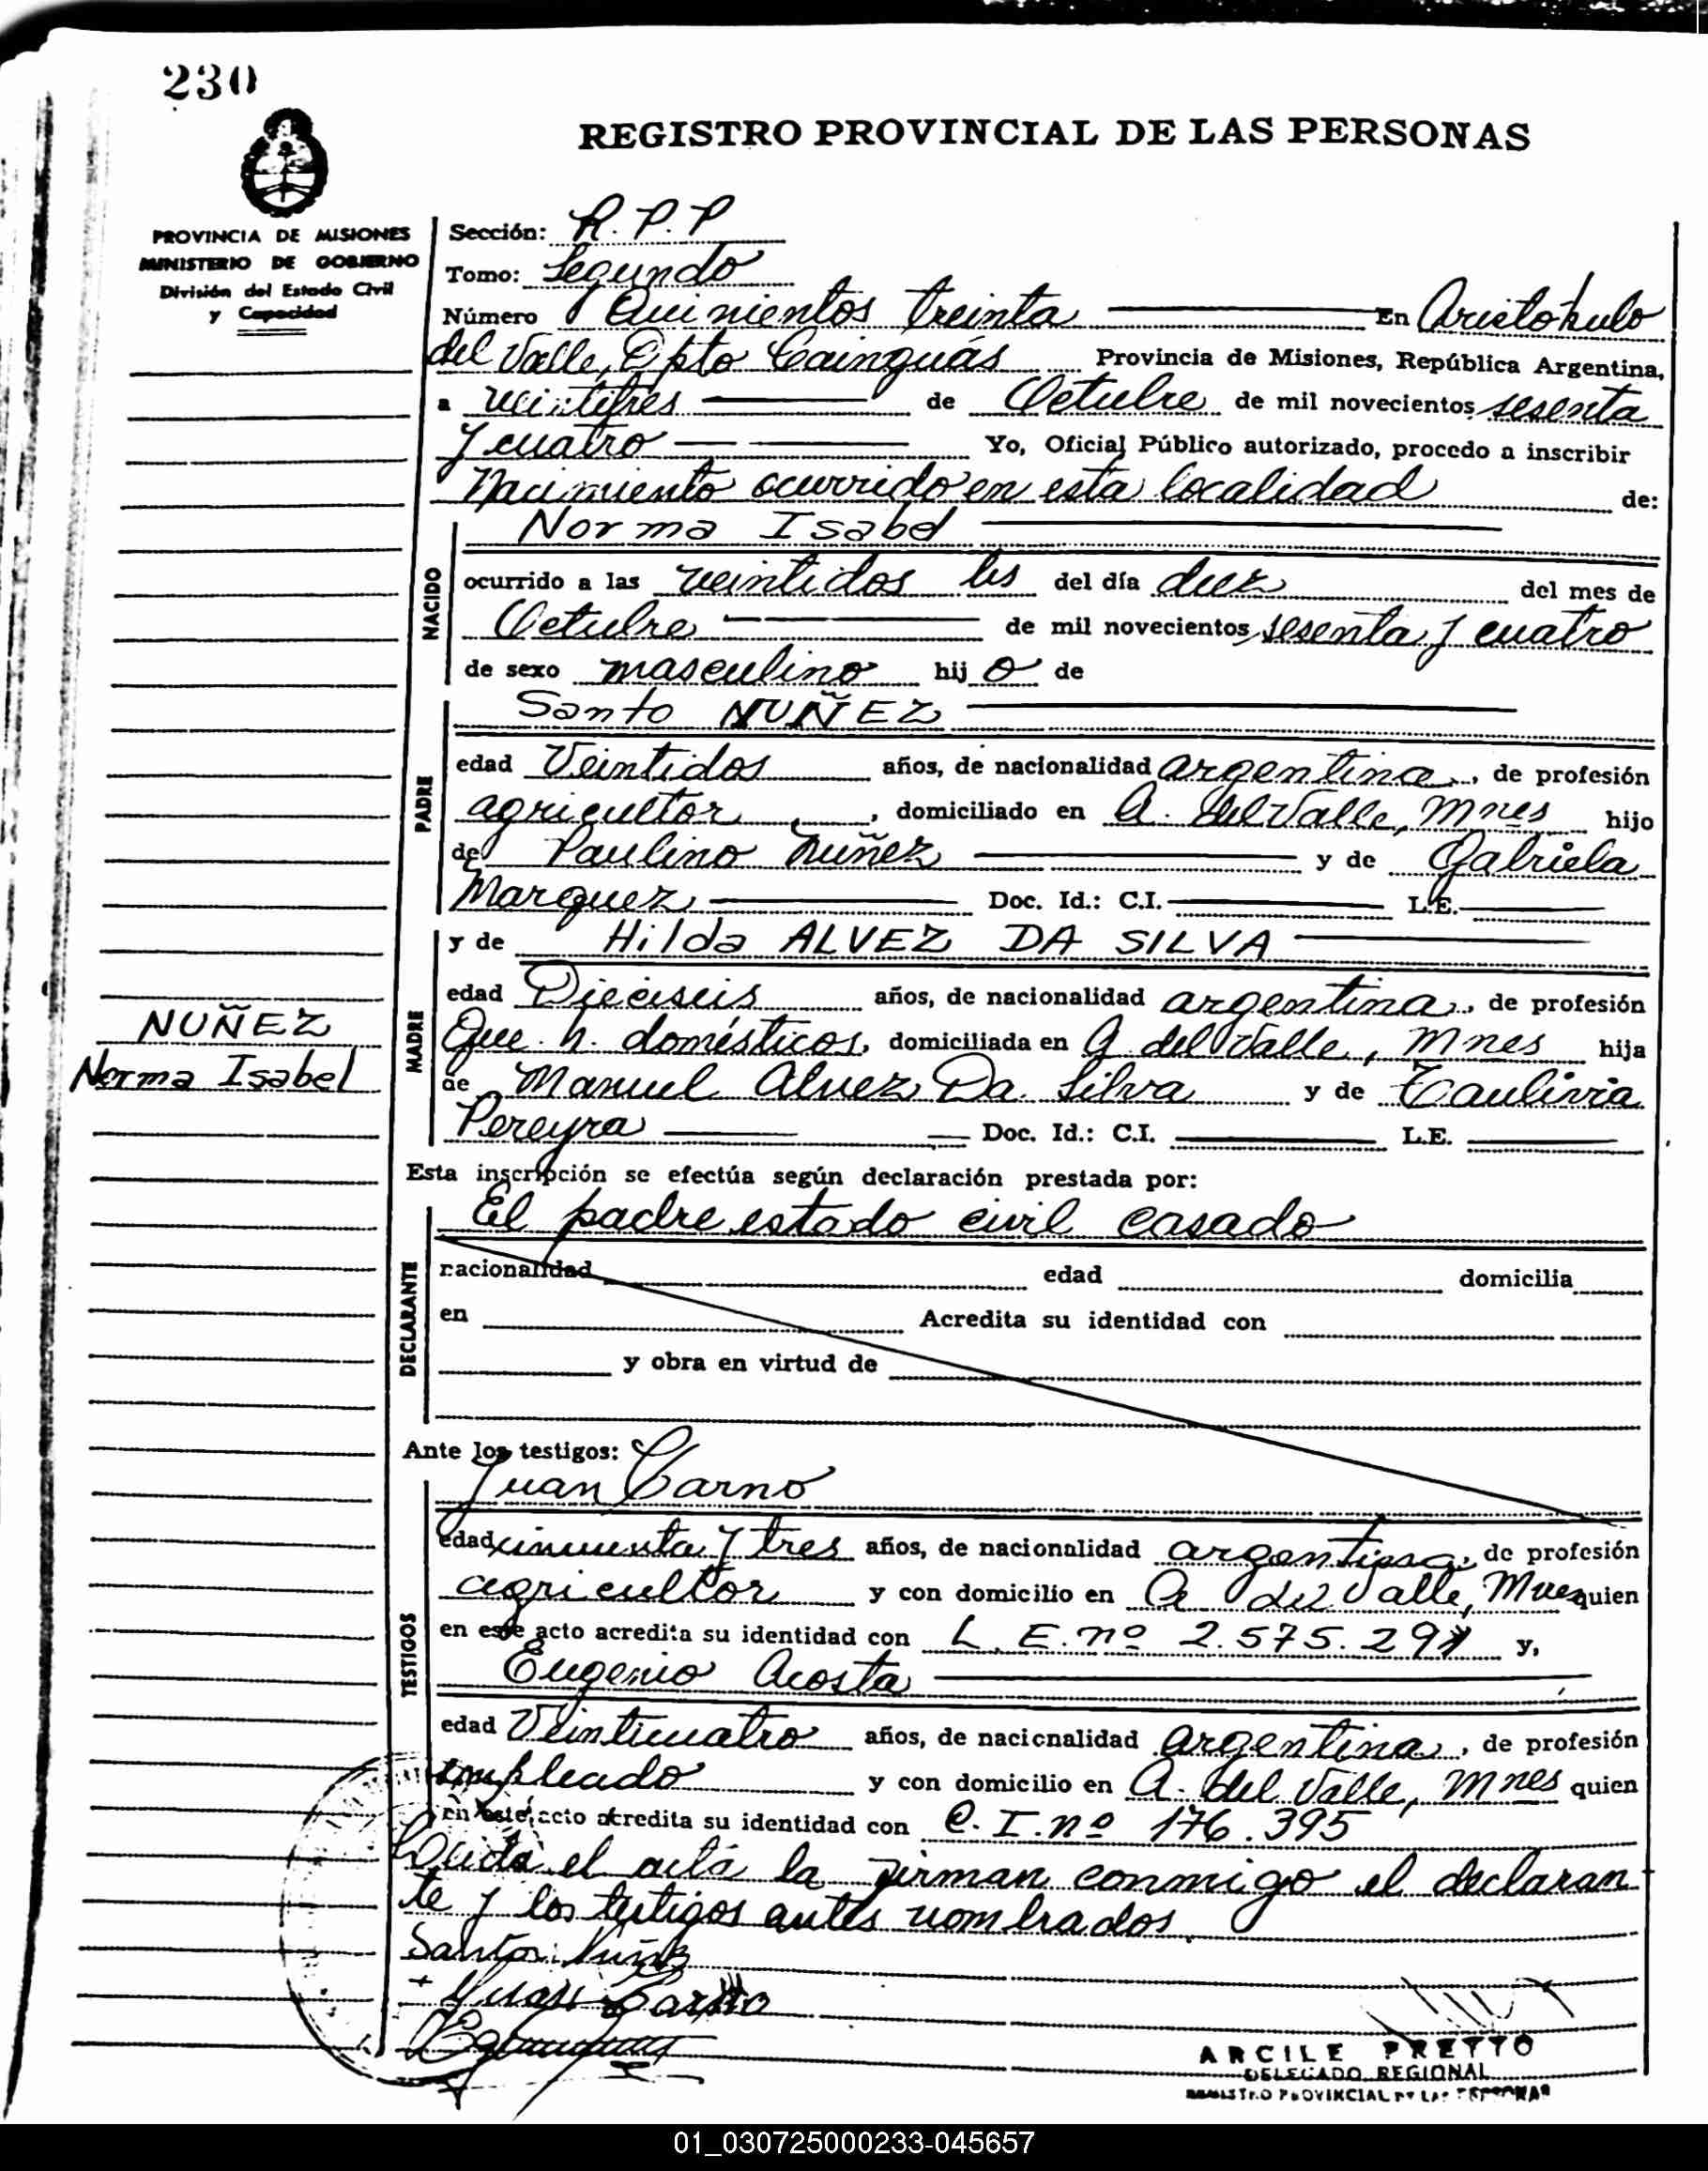 230
REGISTRO PROVINCIAL DE LAS PERSONAS
PROVINCIA DE MISIONES
MINISTERIO DE GOBIERNO
División del Estado Civil
y Capacidad
Sección: R. P. P
Tomo: Segundo
Número Quinientos treinta En Aristóbulo
del Valle, Dpto Cainguás Provincia de Misiones, República Argentina,
a veintitres de Octubre de mil novecientos sesenta
y cuatro Yo, Oficial Público autorizado, procedo a inscribir
Nacimiento ocurrido en esta localidad de:
NACIDO
Norma Isabel
ocurrido a las veintidos hs del día diez del mes de
Octubre de mil novecientos sesenta y cuatro
de sexo masculino hijo de
PADRE
Santo NUÑEZ
edad Veintidos años, de nacionalidad argentina, de profesión
agricultor, domiciliado en A. del Valle, Mnes hijo
de Paulino Nuñez y de Gabriela
Marquez Doc. Id.: C.I. L.E.
MADRE
y de Hilda ALVEZ DA SILVA
edad Dieciseis años, de nacionalidad argentina, de profesión
Que h. domésticos, domiciliada en A. del Valle, Mnes hija
de Manuel Alvez Da Silva y de
Pereyra Doc. Id.: C.I. L.E.
NUÑEZ
Norma Isabel
Esta inscripción se efectúa según declaración prestada por:
DECLARANTE
El padre estado civil casado
nacionalidad edad domicilia
en Acredita su identidad con
y obra en virtud de
Ante los testigos:
TESTIGOS
Juan Carno
edad cincuenta y tres años, de nacionalidad argentina, de profesión
agricultor y con domicilio en A del Valle, Mnes quien
en este acto acredita su identidad con L. E. nº 2.575.291 y,
Eugenio Acosta
edad Veinticuatro años, de nacionalidad argentina, de profesión
empleado y con domicilio en A. del Valle, Mnes quien
en este acto acredita su identidad con C. I. nº 176.395
Leida el acta la firman conmigo el declaran
te y los testigos antes nombrados
Santo Nuñez
Juan Carno
ARCILE PRETTO
DELEGADO REGIONAL
REGISTRO PROVINCIAL DE LAS PERSONAS
01_030725000233-045657